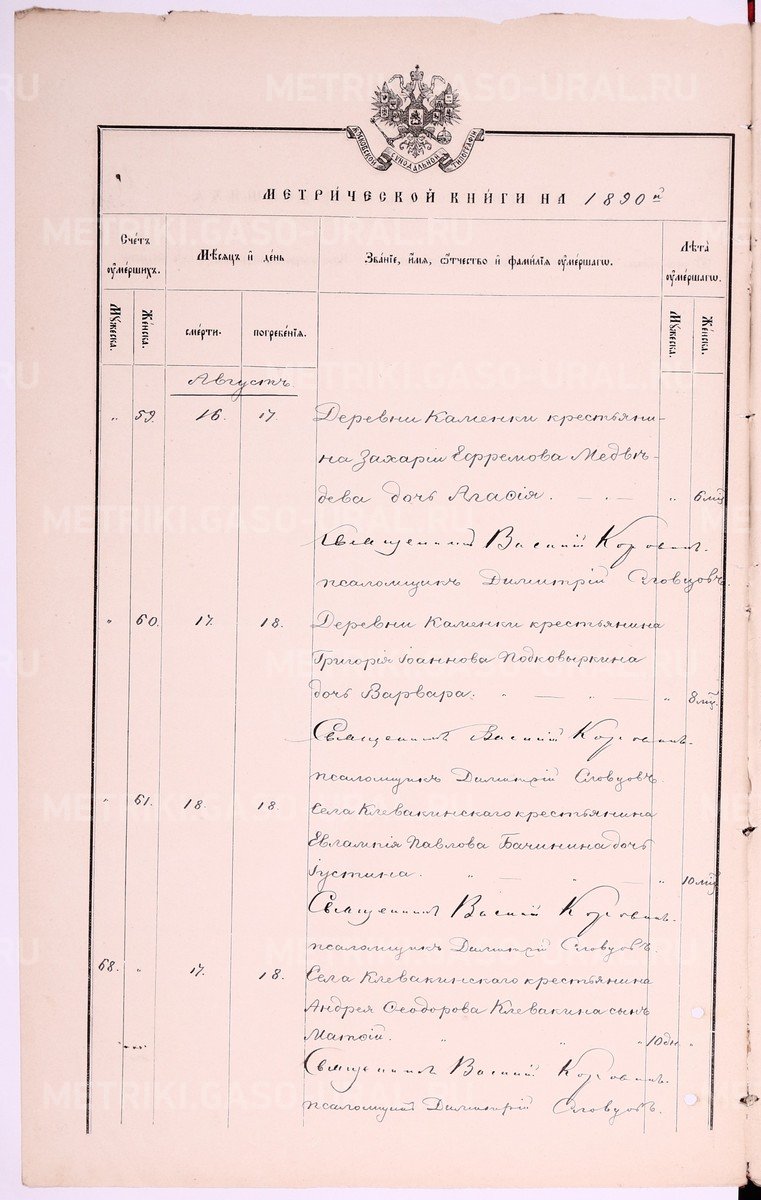 METRIKI.GASO-URAL.RU
МОСКОВСКОЙ СѴНОДАЛЬНОЙ ТИПОГРАФІИ
МЕТРИ́ЧЕСКОЙ КНИ́ГИ НА 1890й
Сче́тъ ѹме́ршихъ.
Мѣ́сяцъ и҆ де́нь
Зва́нїе, и҆́мя, ѻ҆́тчество и҆ фами́лїя ѹ҆ме́ршагѡ.
Лѣ́та ѹ҆ме́ршагѡ.
Мꙋ́жеска.
Же́нска.
сме́рти.
погребе́нїѧ.
Мꙋ́жеска.
Же́нска.
Августъ
" 59. 16. 17. Деревни Каменки крестьяни-
на Захаріи Ефремова Медвѣ-
дева дочь Агафія. — " 6 мц
Священникъ Василій Коровинъ.
псаломщикъ Димитрій Словцовъ.
" 60. 17. 18. Деревни Каменки крестьянина
Григорія Іоаннова Подковыркина
дочь Варвара. " — " — " 8 мц.
Священникъ Василій Коровинъ.
псаломщикъ Димитрій Словцовъ.
" 61. 18. 18. Села Клевакинскаго крестьянина
Евлампія Павлова Бачинина дочь
Іустина. " — " — " 10 мц
Священникъ Василій Коровинъ.
псаломщикъ Димитрій Словцовъ.
68. " 17. 18. Села Клевакинскаго крестьянина
Андрея Ѳеодорова Клевакина сынъ
Матѳій. " " " 10 дн. "
Священникъ Василій Коровинъ.
псаломщикъ Димитрій Словцовъ.